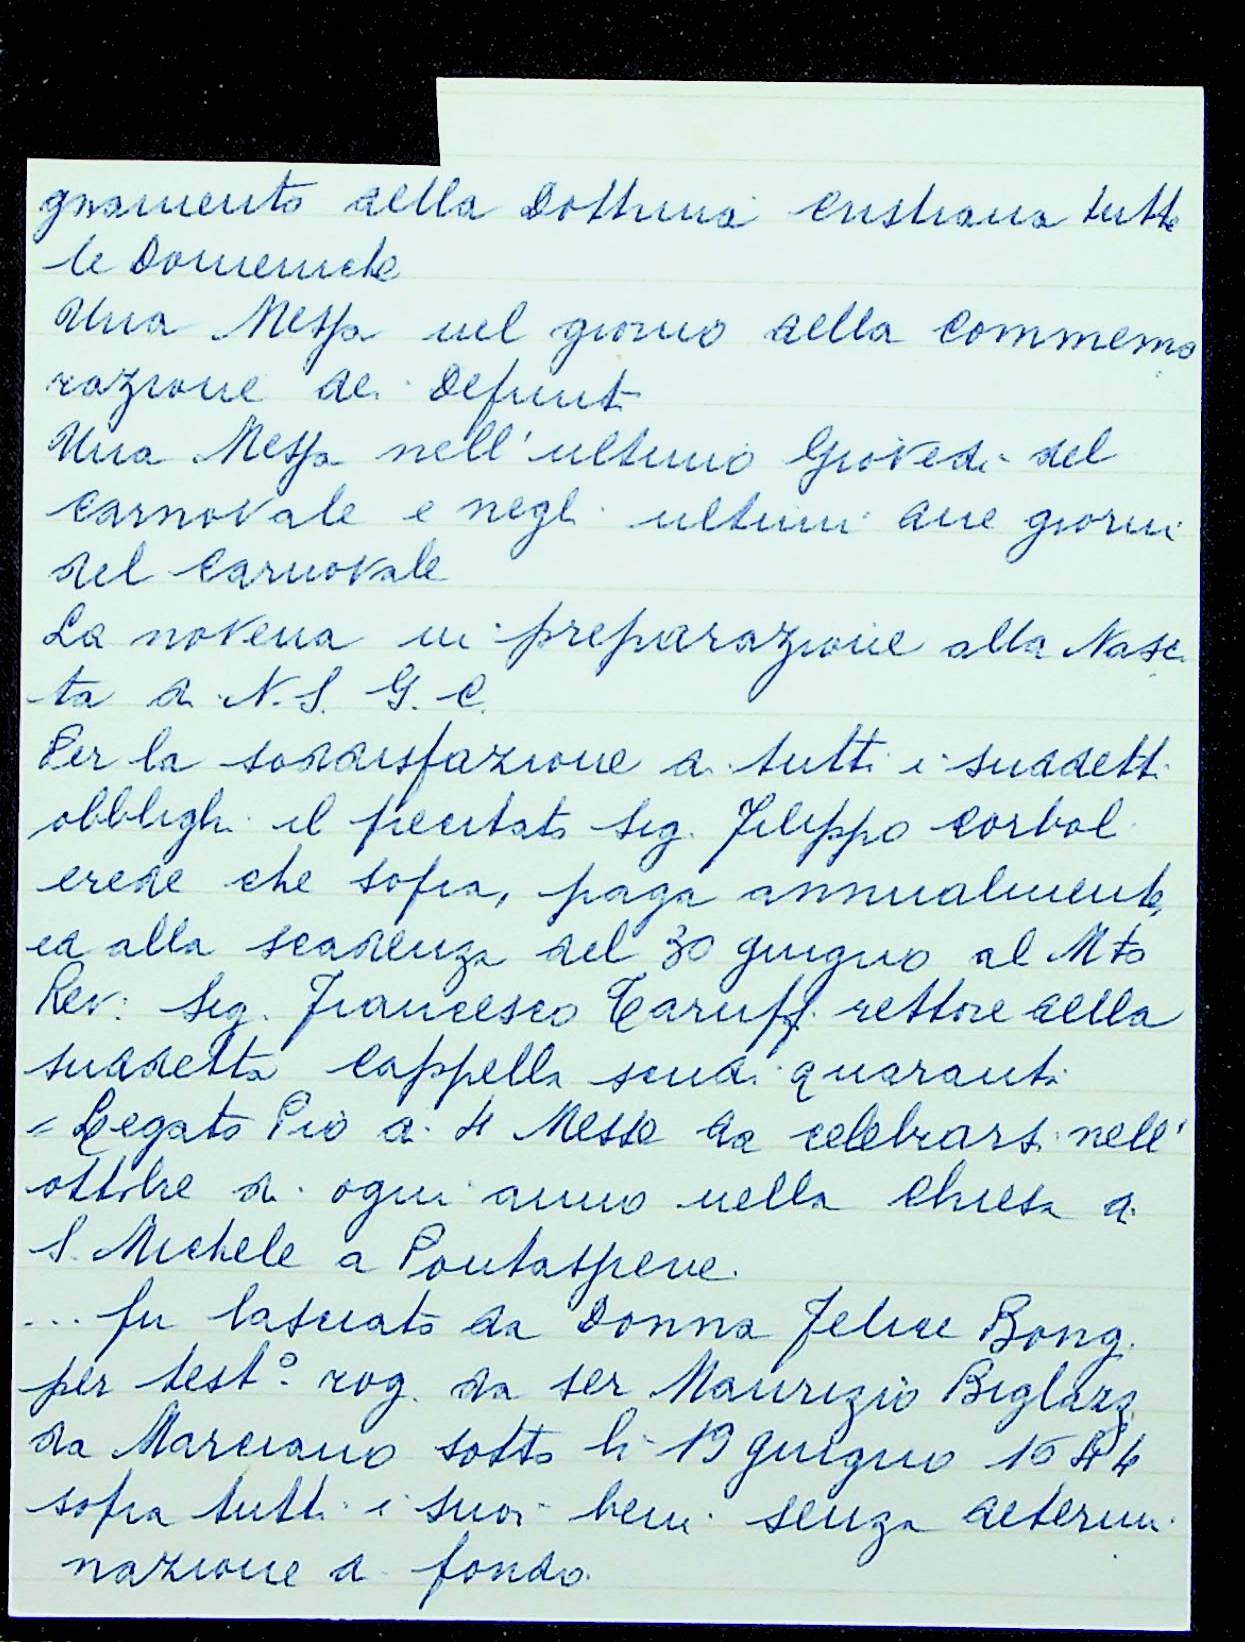 gnamento della Dottrina Cristiana tutte
le Domeniche
Una Messa nel giorno della Commemo
razione dei Defunti
Una Messa nell'ultimo Giovedi del
Carnovale e negli ultimi due giorni
del Carnovale
La novena in preparazione alla Nasci
ta di N. S. G. C.
Per la soddisfazione di tutti i suddetti
obblighi il precitato Sig. Filippo Corboli
erede che sopra, paga annualmente,
ed alla scadenza del 30 giugno al Mto
Rev: Sig. Francesco Taruffi rettore della
suddetta Cappella scudi quaranta
= Legato Pio di 4 Messe da celebrarsi nell'
ottobre di ogni anno nella Chiesa di
S. Michele a Pontaspieve.
... fu lasciato da Donna Felice Bong.
per testº. rog. da ser Maurizio Biglazzi
da Marciano sotto li 19 giugno 1644
sopra tutti i suoi beni senza determi
nazione di fondo.